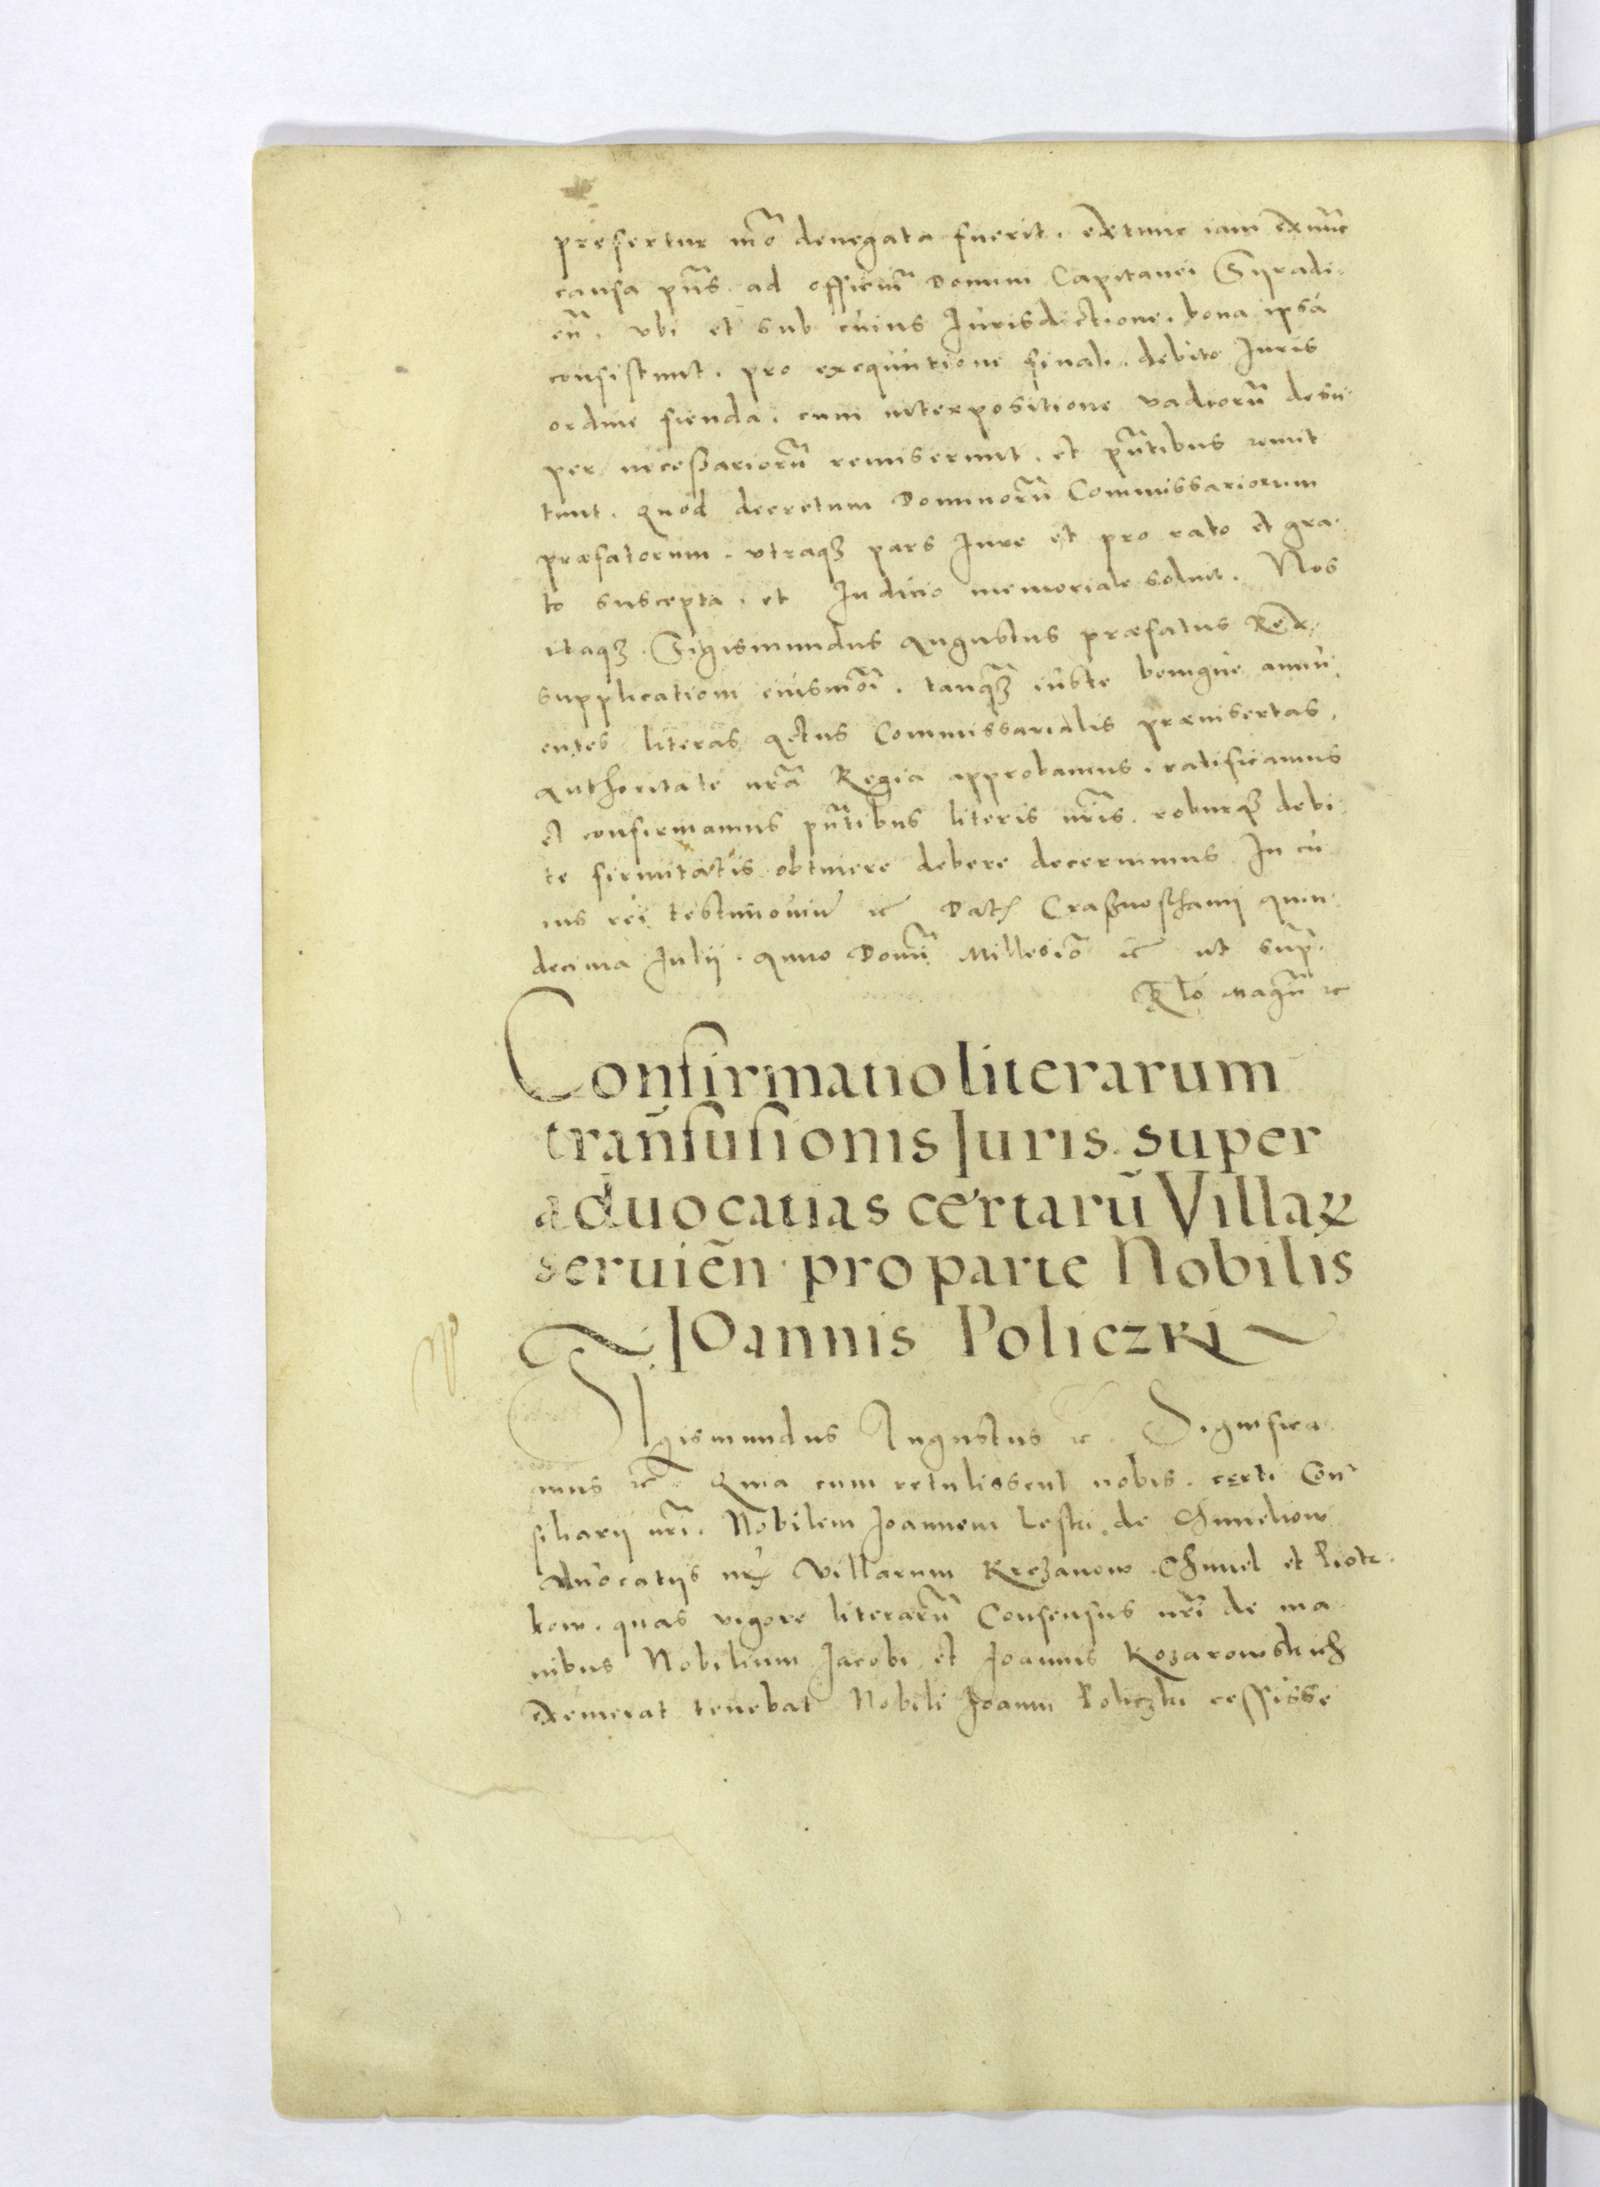 presertur mõ denegata fuerit. extunc iam exnũc
causa pñs. ad officiũ Domini Capitanei Syradi
eñ. vbi et sub cuius Iurisdictione. bona ipsa
consistunt. pro exequutione finali. debito Iuris
ordine fienda. cum interpositione vadiorũ desu
per necessariorũ remiserunt. et pñtibus remit
tunt. Quod decretum Dominorũ Commissariorum
præfatorum. vtraqȝ pars Iure et pro rato et gra
to suscepta. et Iudicio memoriale soluit. Nos
itaqȝ Sigismundus Augustus præfatus Rex
supplicationi eiusmõi. tanqȝ iuste benigne annu
entes literas Actus Commissarialis præinsertas.
Authoritate nrã Regia approbamus. ratificamus
et confirmamus pñtibus literis nrĩs. roburqȝ debi
te firmitatis obtinere debere decernimus. In cu
ius rei testimoniũ ꝛc Dat Crasnosthami quin
decima Iulii. Anno Domĩ Millesiõ ꝛc ut sup̃.
Rlõ Magñ ꝛc
Confirmatio literarum
trañsfusionis Iuris. super
aduocatias certarũ Villaꝝ
seruieñ pro parte Nobilis
Ioannis Policzki
SIgismundus Augustus ꝛc. Significa
mus ꝛc Quia cum retulissent nobis. certi Con
siliarij nrĩ. Nobilem Ioannem Leski de Chmeliow
Aduocatijs in Villarum Krczanow Chmiel et Piotr
kow. quas vigore literarũ Consensus nrĩ de ma
nibus Nobilium Iacobi et Ioannis Kozarowskich
exemerat tenebat Nobili Ioanni Policzki cessisse